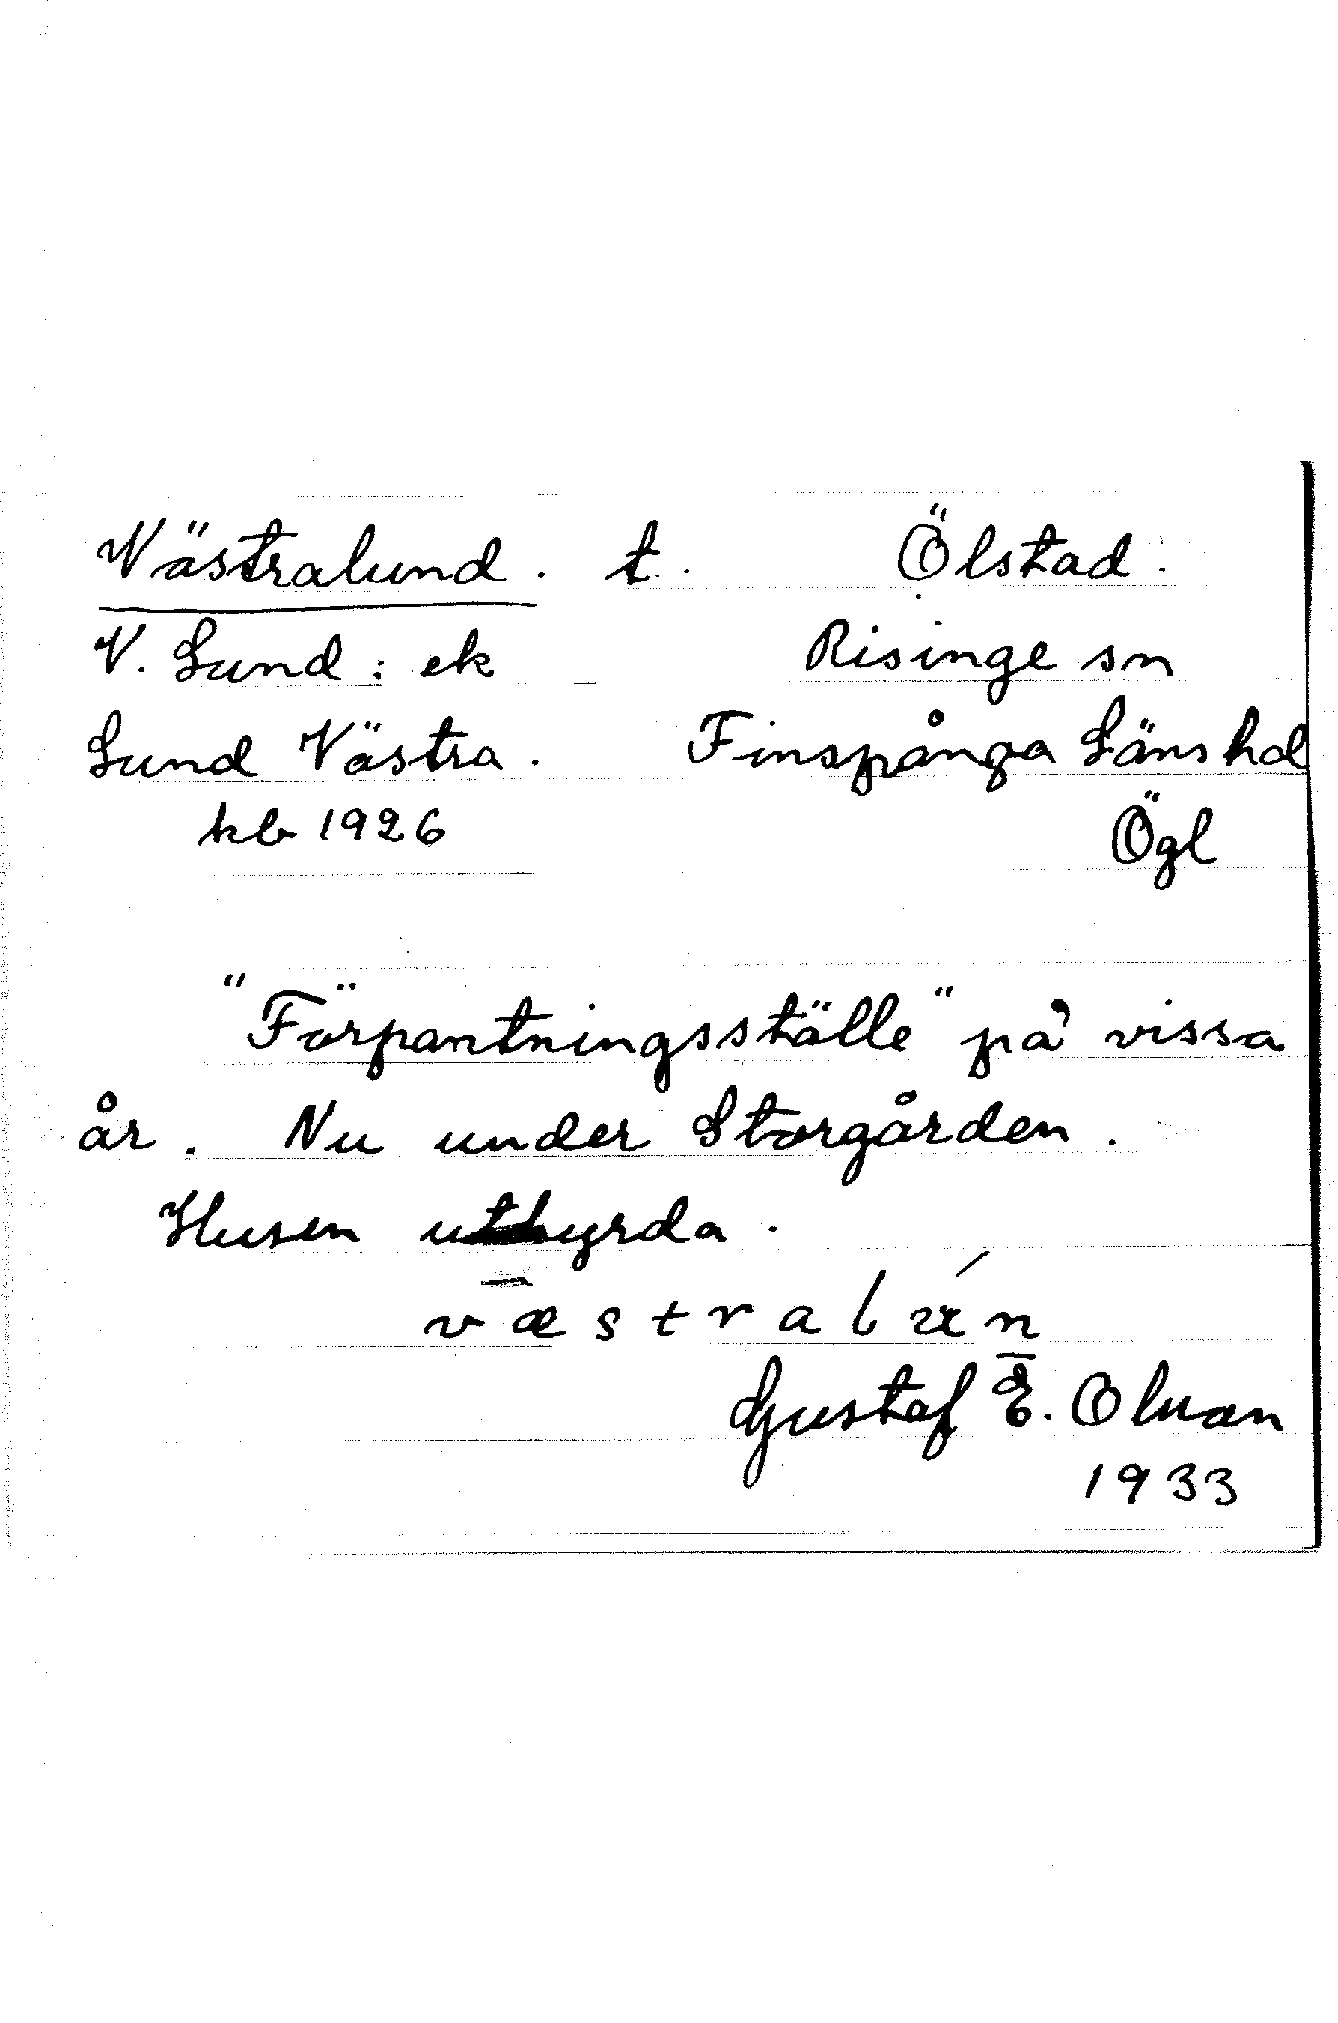 Västralund. t. Ölstad.
V. Lund: ek Risinge sn
Lund Västra. Finspånga Läns hd
kb 1926 Ögl
"Förpantningsställe" på vissa
år. Nu under Storgården.
Husen uthyrda.
væstralún
Gustaf E. Olman
1933